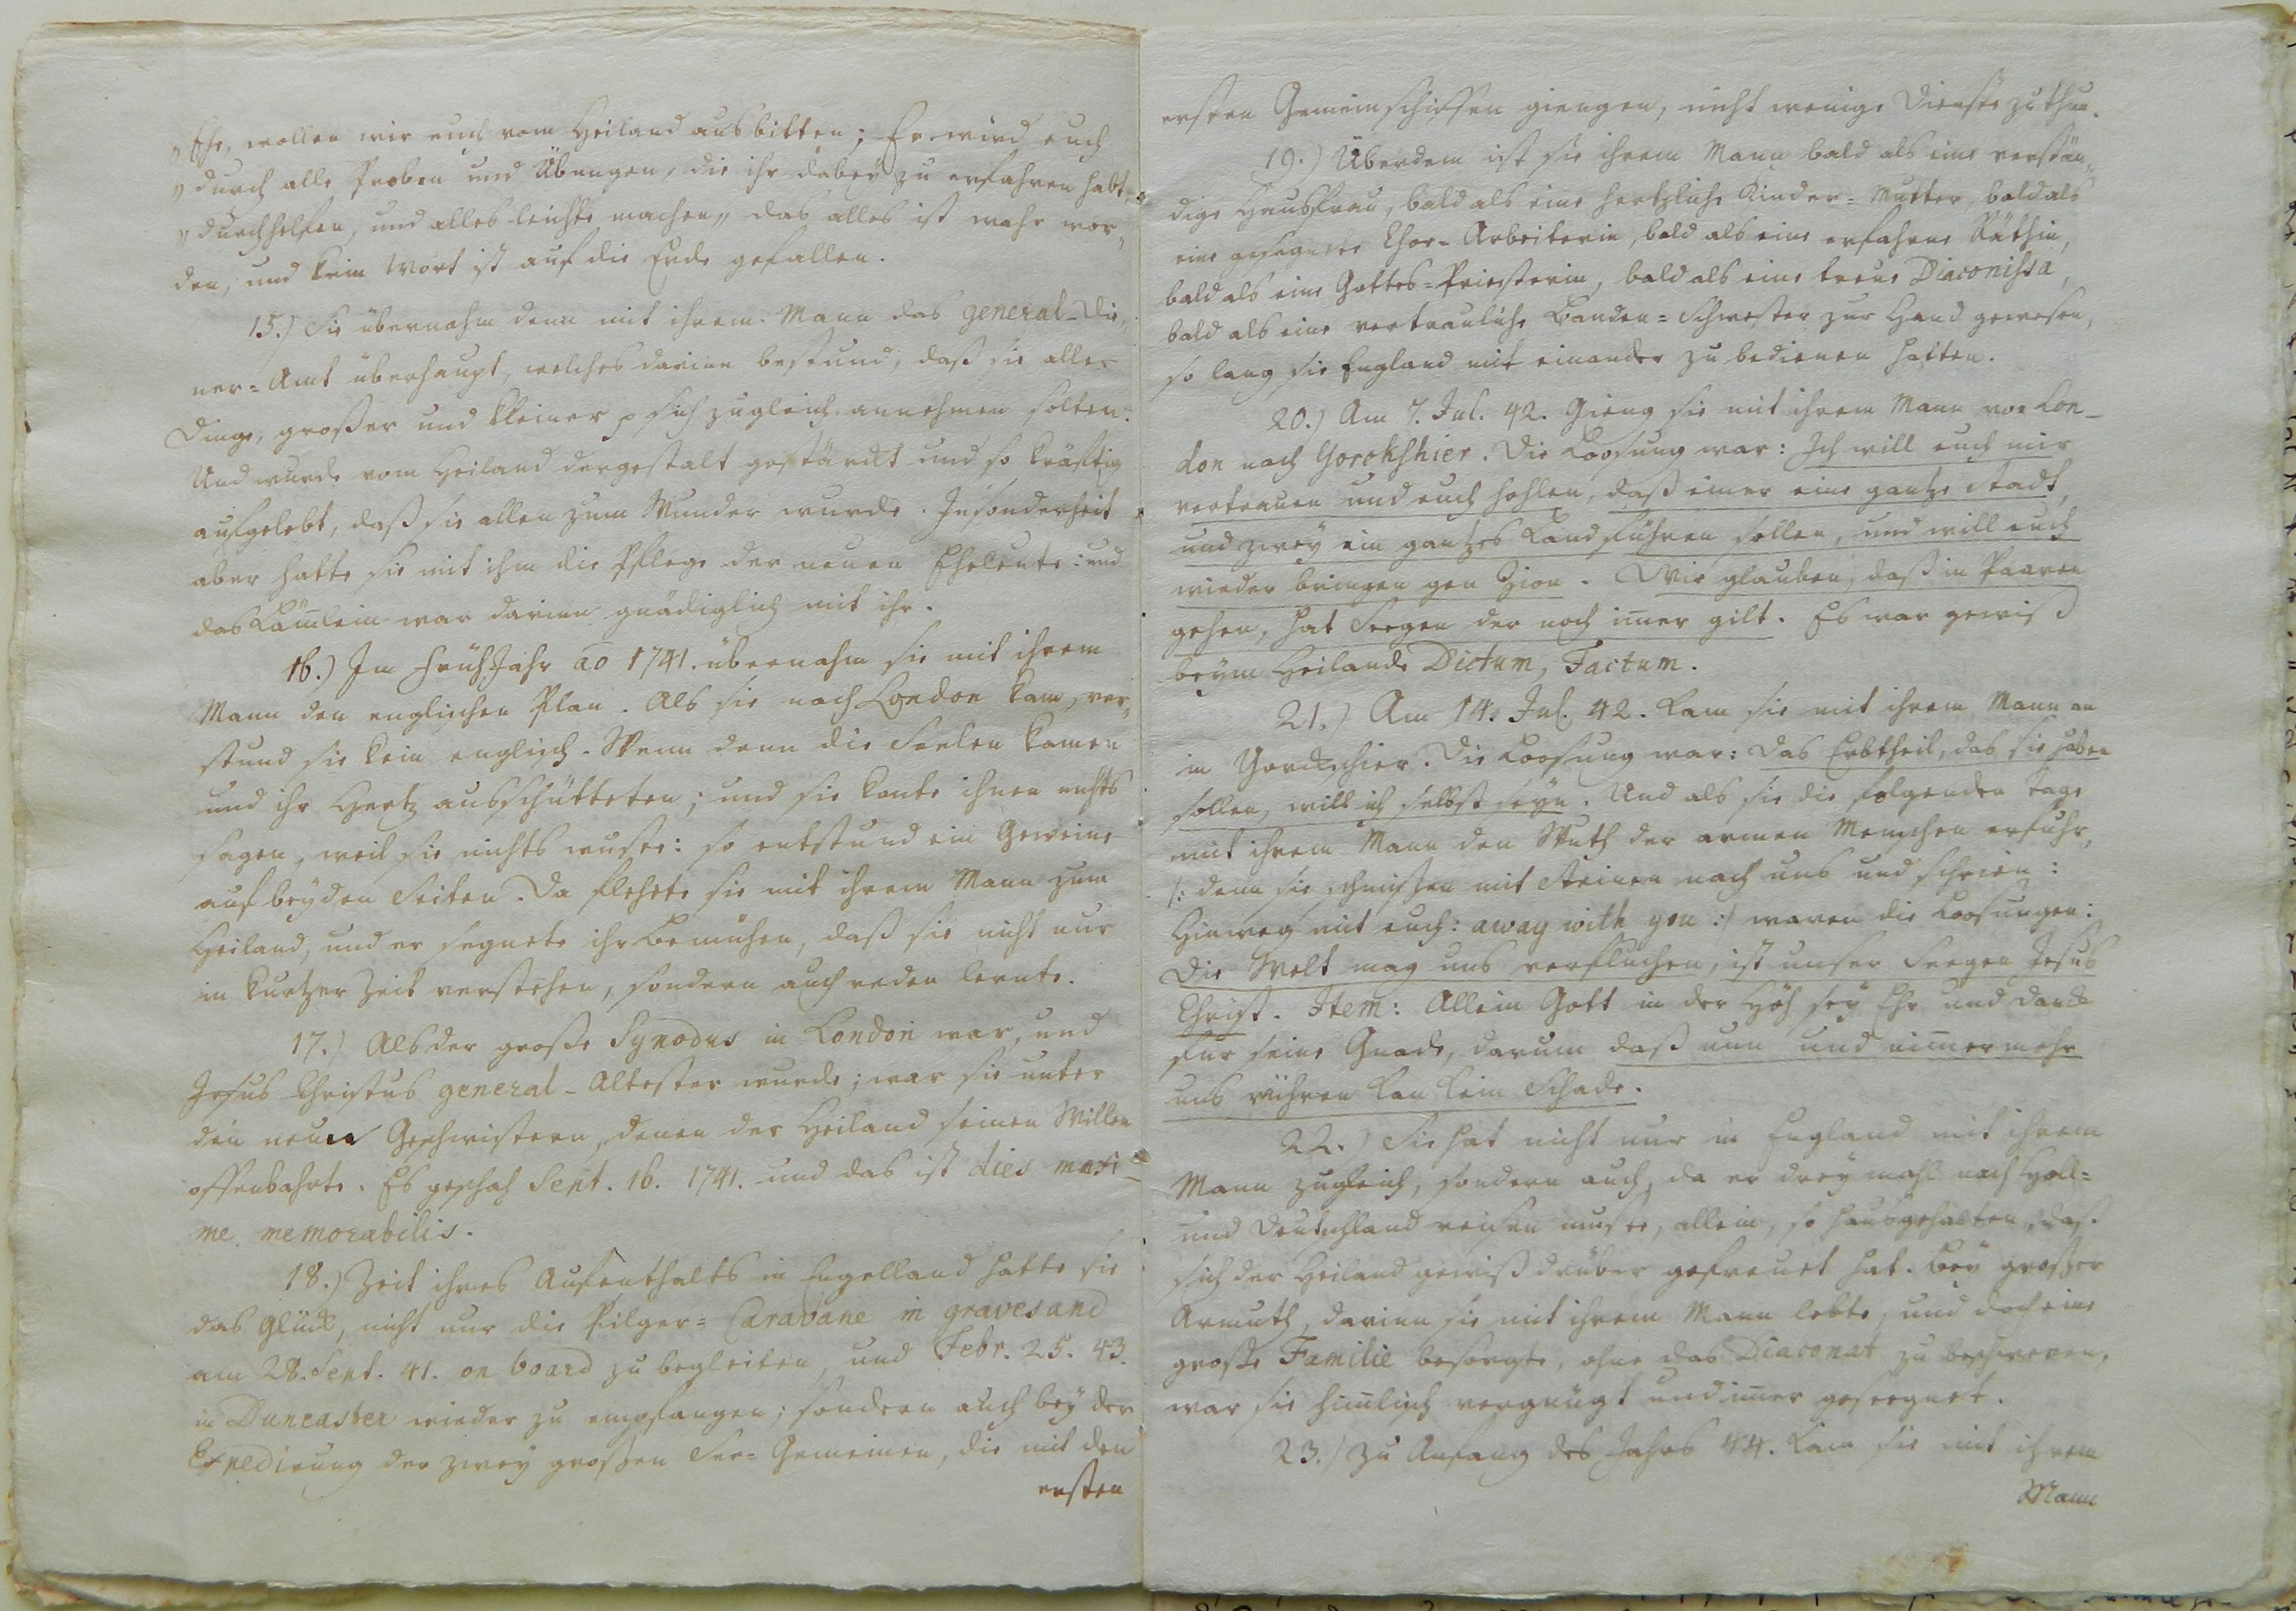 „Ehe, wollen wir euch vom Heiland ausbitten; Er wird euch
„durch alle Proben und Übungen, die ihr dabey zu erfahren habt,
„durchhelfen, und alles leichte machen„ das alles ist wahr wor„
den, und kein Wort ist auf die Erde gefallen.
15.) Sie übernahm denn mit ihrem Mann das general-Die„
ner-Amt überhaupt, welches darinn bestund, daß sie aller
Dinge, großer und kleiner p sich zugleich annehmen solten:
Und wurde vom Heiland dergestalt gestärckt und so kräftig
aufgelebt, daß sie allen zum Wunder wurde. Insonderheit
aber hatte sie mit ihm die Pflege der neuen Eheleute: und
das Läm̅lein war darinn gnädiglich mit ihr.
16.) Im FrühJahr ao 1741. übernahm sie mit ihrem
Mann den englischen Plan. Als sie nach London kam, ver„
stund sie kein englisch. Wenn denn die Seelen kamen
und ihr Hertz ausschütteten; und sie konte ihnen nichts
sagen, weil sie nichts wuste: so entstund ein Geweine
auf beyden Seiten. Da flehete sie mit ihrem Mann zum
Heiland, und er segnete ihr Bemühen, daß sie nicht nur
in kurtzer Zeit verstehen, sondern auch reden lernte.
17.) Als der große Synodus in London war, und
Jesus Christus general-Ältester wurde; war sie unter
den neun Geschwistern, denen der Heiland seinen Willen
offenbahrte. Es geschah Sept. 16. 1741. und das ist dies maxi-
me memorabilis.
18.) Zeit ihres Aufenthalts in Engelland hatte sie
das Glück, nicht nur die Pilger-Caravane in gravesand
am 28. Sept. 41. on board zu begleiten, und Febr. 25. 43.
in Duncaster wieder zu empfangen; sondern auch bey der
Expedirung der zwey großen See-Gemeinen, die mit den
ersten
ersten Gemeinschiffen giengen, nicht wenige Dienste zu thun.
19.) Überdem ist sie ihrem Mann bald als eine verstän„
dige Hausfrau, bald als eine hertzliche Kinder-Mutter, bald als
eine gesegnete Chor-Arbeiterin, bald als eine erfahrne Räthin,
bald als eine Gottes-Priesterin, bald als eine treue Diaconissa,
bald als eine vertrauliche Banden-Schwester zur Hand gewesen,
so lang sie England mit einander zu bedienen hatten.
20.) Am 7. Jul. 42. Gieng sie mit ihrem Mann von Lon-
don nach Yorckshier. Die Loosung war: Ich will euch mir
vertrauen und euch hohlen, daß einer eine gantze Stadt,
und zwey ein gantzes Land führen sollen, und will euch
wieder bringen gen Zion. Wir glauben, daß in Paaren
gehen, hat Seegen der noch im̅er gilt. Es war gewiß
beym Heilande Dictum, Factum.
21.) Am 14. Jul. 42. kam sie mit ihrem Mann an
in Yorckschier. Die Loosung war: Das Erbtheil, das sie haben
sollen, will ich selbst seyn. Und als sie die folgenden Tage
mit ihrem Mann den Wuth der armen Menschen erfuhr,
/: denn sie schmißen mit Steinen nach uns und schrien:
Hinweg mit euch: away with you :/ waren die Loosungen:
Die Welt mag uns verfluchen, ist unser Seegen Jesus
Christ. Item: Allein Gott in der Höh sey Ehr und Danck
für seine Gnade, darum daß nun und nim̅ermehr
uns rühren kan kein Schade.
22.) Sie hat nicht nur in England mit ihrem
Mann zugleich, sondern auch, da er drey mahl nach Holl-
und Deutschland reisen muste, allein, so hausgehalten, daß
sich der Heiland gewiß drüber gefreuet hat. Bey großer
Armuth, darinn sie mit ihrem Mann lebte, und doch eine
große Familie besorgte, ohne das Diaconat zu beschweren,
war sie him̅lisch vergnügt und im̅er geseegnet.
23.) Zu Anfang des Jahrs 44. kam sie mit ihrem
Mann